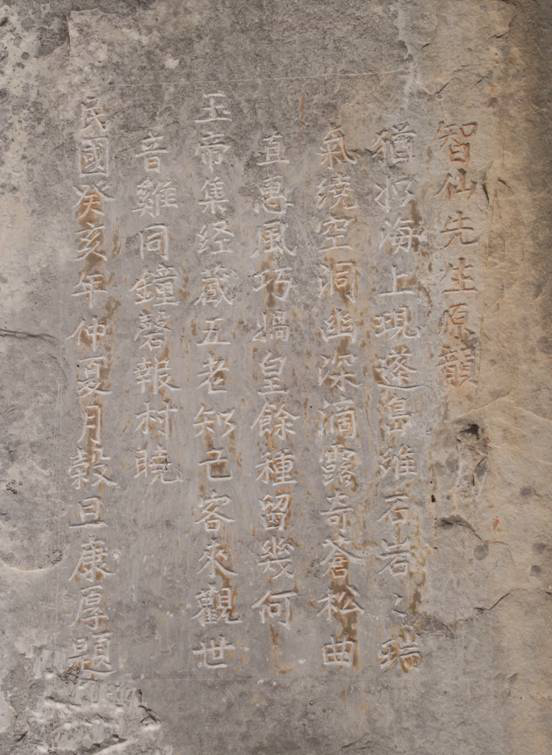 智仙先生原韻
猶如海上現蓬島雄石岩〻瑞
氣繞空洞幽深滴露奇蒼松曲
直惠風巧媧皇餘種留幾何
玉帝集经蔵五老知己客來觀世
音雞同鐘磬報村曉
民國癸亥年仲夏月穀旦康厚題